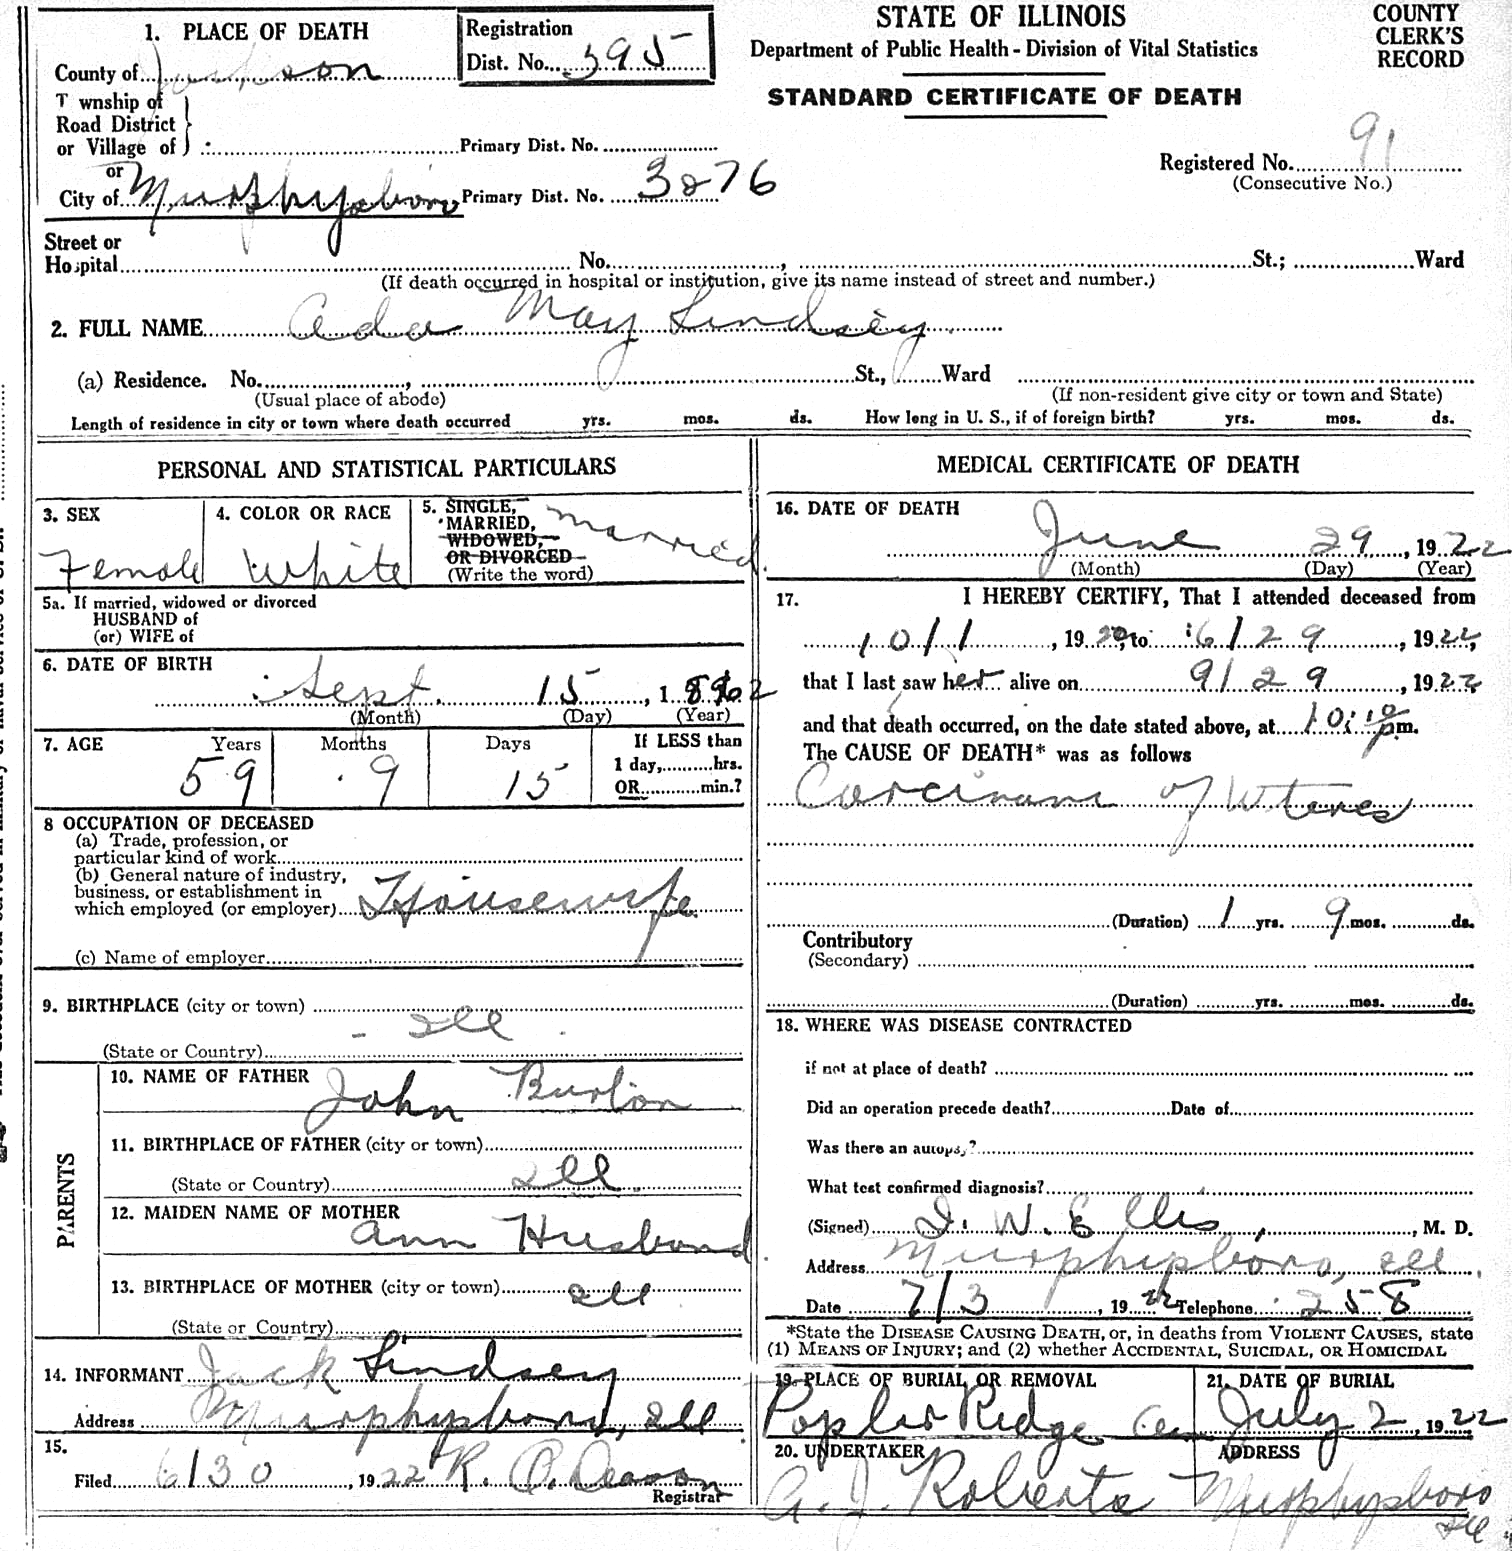 1. PLACE OF DEATH
Registration
Dist. No. 395
STATE OF ILLINOIS
Department of Public Health - Division of Vital Statistics
STANDARD CERTIFICATE OF DEATH
COUNTY
CLERK'S
RECORD
County of Jackson
T wnship of
Road District
or Village of Primary Dist. No.
or
City of Murphysboro Primary Dist. No. 3276
Registered No. 91
(Consecutive No.)
Street or
Hospital No. , St.; Ward
(If death occurred in hospital or institution, give its name instead of street and number.)
2. FULL NAME Ada May Lindsey
(a) Residence. No. , St., Ward
(Usual place of abode) (If non-resident give city or town and State)
Length of residence in city or town where death occurred yrs. mos. ds. How long in U. S., if of foreign birth? yrs. mos. ds.
PERSONAL AND STATISTICAL PARTICULARS
3. SEX
Female
4. COLOR OR RACE
White
5. SINGLE,
MARRIED,
WIDOWED,
OR DIVORCED
(Write the word)
Married.
5a. If married, widowed or divorced
HUSBAND of
(or) WIFE of
6. DATE OF BIRTH
Sept. 15, 1862
(Month) (Day) (Year)
7. AGE Years Months Days
59 9 15
If LESS than
1 day, hrs.
OR min.?
8 OCCUPATION OF DECEASED
(a) Trade, profession, or
particular kind of work
(b) General nature of industry,
business, or establishment in
which employed (or employer) Housewife
(c) Name of employer
9. BIRTHPLACE (city or town)
Ill
(State or Country)
PARENTS
10. NAME OF FATHER John Burton
11. BIRTHPLACE OF FATHER (city or town)
(State or Country) Ill
12. MAIDEN NAME OF MOTHER
Ann Husband
13. BIRTHPLACE OF MOTHER (city or town) Ill
(State or Country)
14. INFORMANT Jack Lindsey
Address Murphysboro, Ill
15.
Filed 6/30, 1922 R. O. Deason
Registrar
MEDICAL CERTIFICATE OF DEATH
16. DATE OF DEATH
June 29, 1922
(Month) (Day) (Year)
17. I HEREBY CERTIFY, That I attended deceased from
10/1, 1920, to 6/29, 1922,
that I last saw her alive on 9/29, 1922
and that death occurred, on the date stated above, at 10:10 pm.
The CAUSE OF DEATH* was as follows
Carcinoma of Uterus
(Duration) 1 yrs. 9 mos. ds.
Contributory
(Secondary)
(Duration) yrs. mos. ds.
18. WHERE WAS DISEASE CONTRACTED
if not at place of death?
Did an operation precede death? Date of
Was there an autopsy?
What test confirmed diagnosis?
(Signed) I. W. Ellis, M. D.
Address Murphysboro, Ill.
Date 7/3, 1922 Telephone 258
*State the DISEASE CAUSING DEATH, or, in deaths from VIOLENT CAUSES, state
(1) MEANS OF INJURY; and (2) whether ACCIDENTAL, SUICIDAL, OR HOMICIDAL
19. PLACE OF BURIAL OR REMOVAL
Poplar Ridge Cem
21. DATE OF BURIAL
July 2, 1922
20. UNDERTAKER
A. J. Roberts
ADDRESS
Murphysboro
Ill